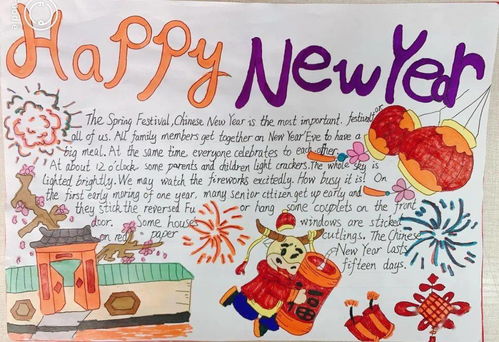 Happy New Year
The Spring Festival, Chinese New Year is the most important festival for
all of us. All family members get together on New Year Eve to have a
big meal. At the same time, everyone celebrates to each other.
At about 12 o'clock some parents and children light crackers. The whole sky is
lighted brightly. We may watch the fireworks excitedly. How busy it is! On
the first early morning of one year, many senior citizen get up early and
they stick the reversed Fu or hang some couplets on the front
door. Some house windows are sticked
on red paper cutlings. The Chinese
New Year lasts
fifteen days.